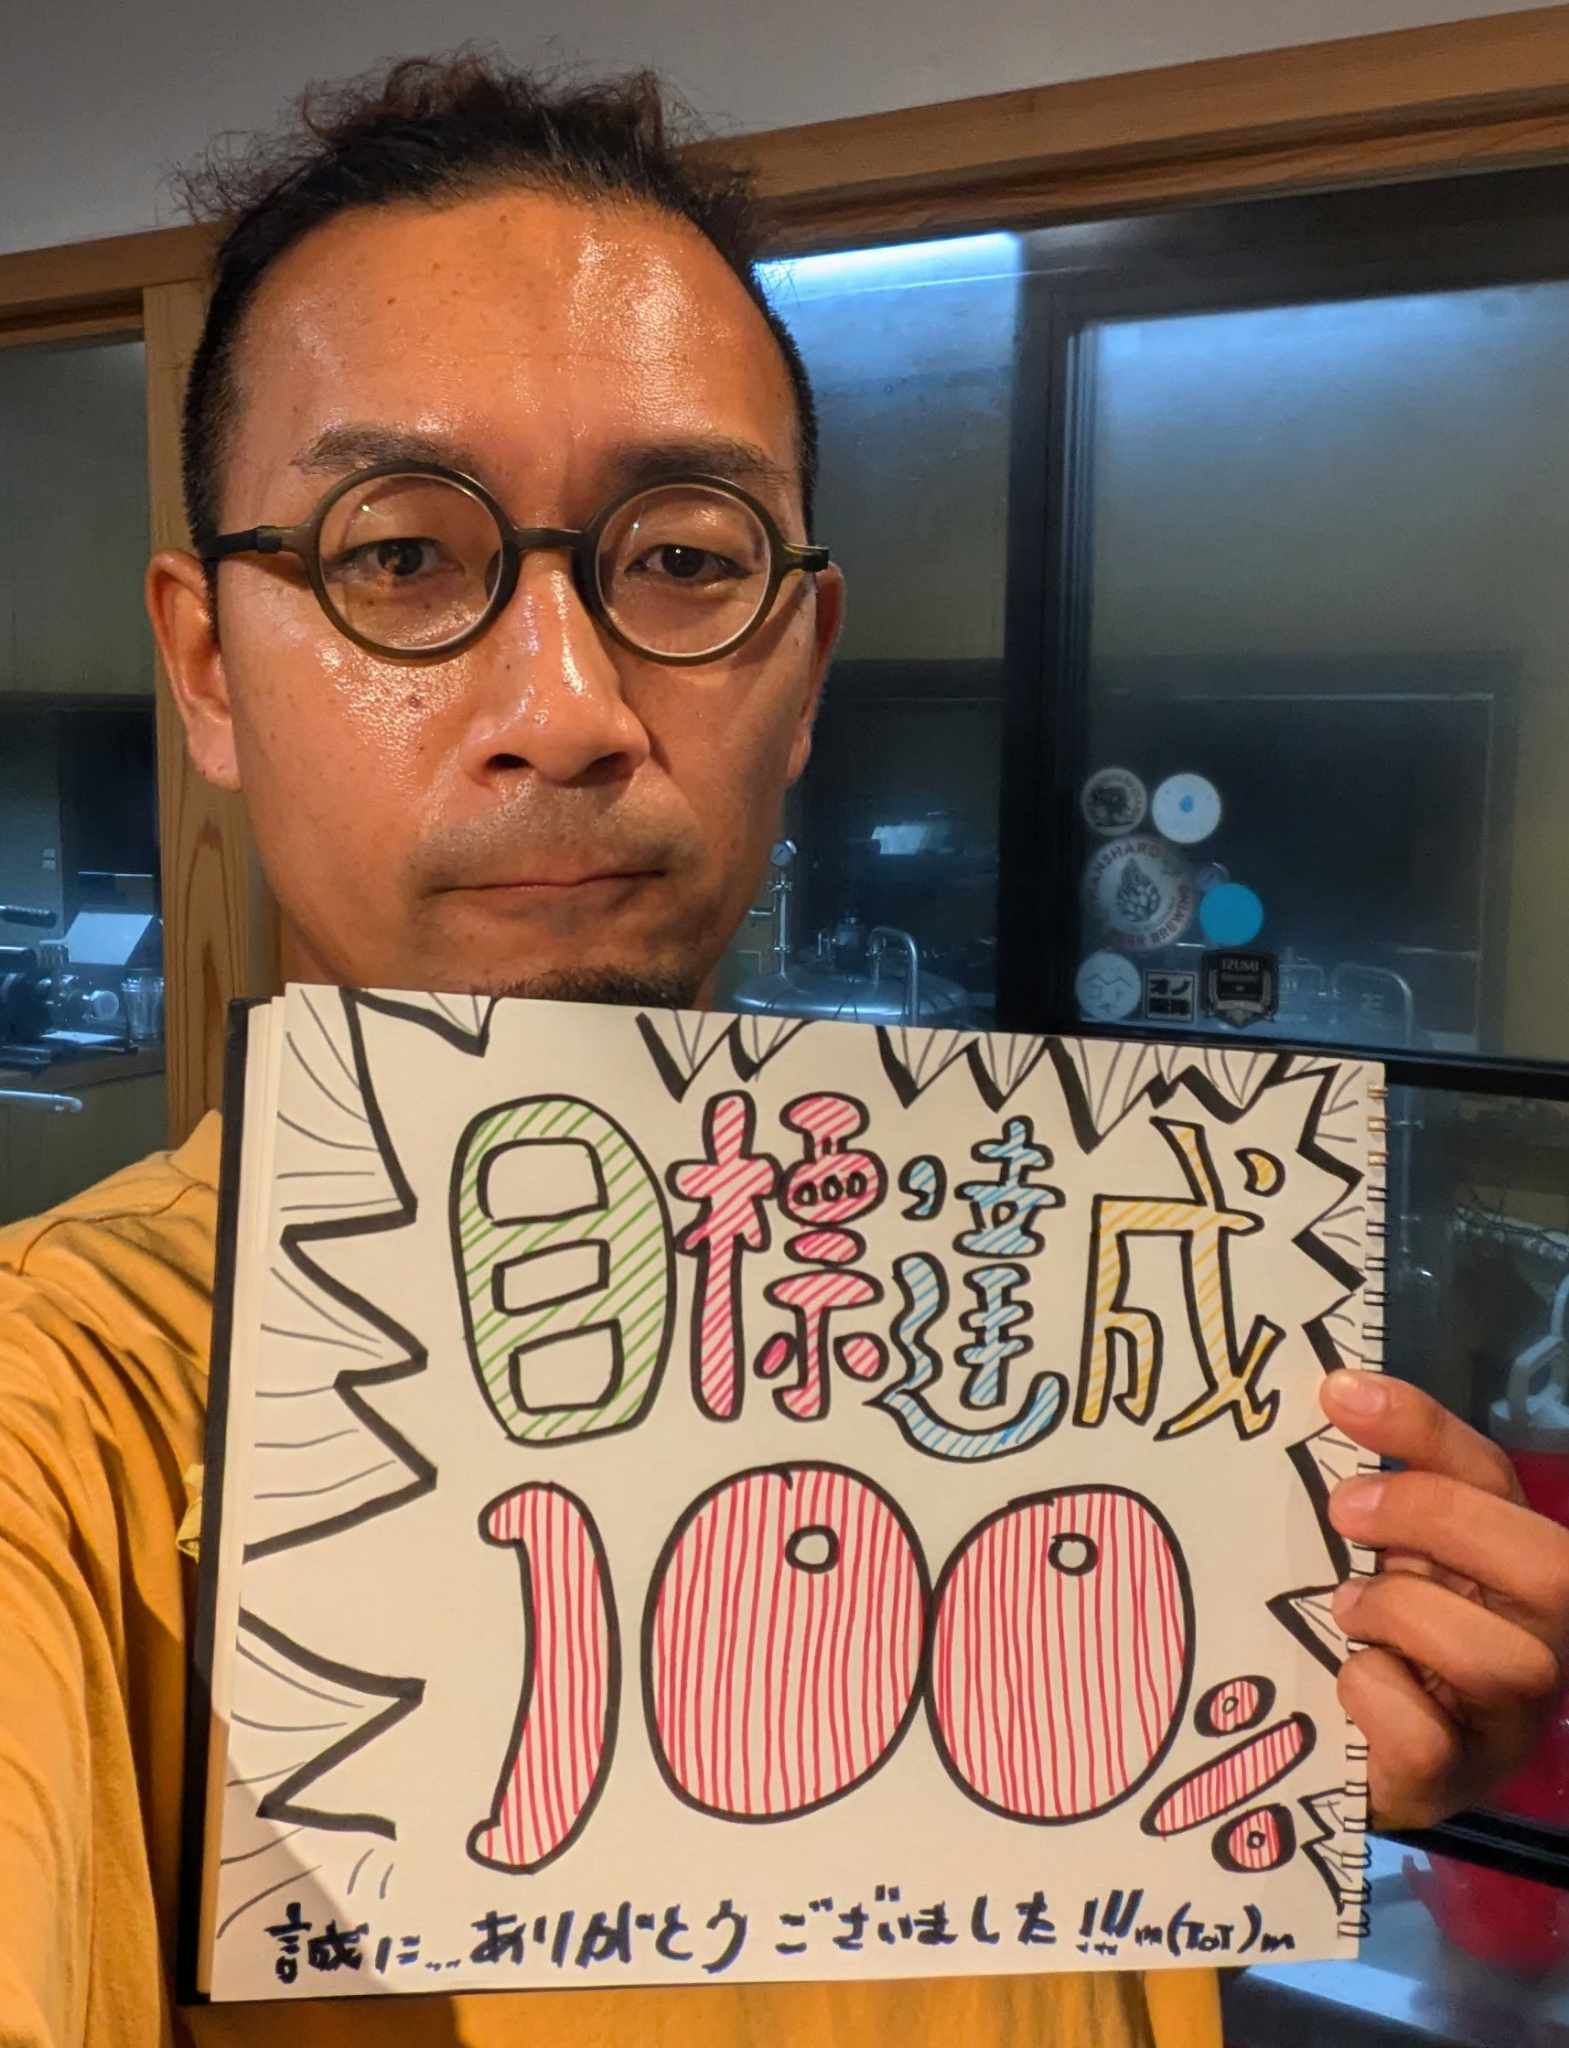 目標達成
100%
誠に...ありがとうございました!!!m(ToT)m
BEER BREWING